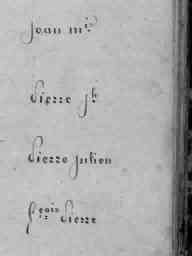 jean m.
pierre j.h
pierre julien
f.cois pierre